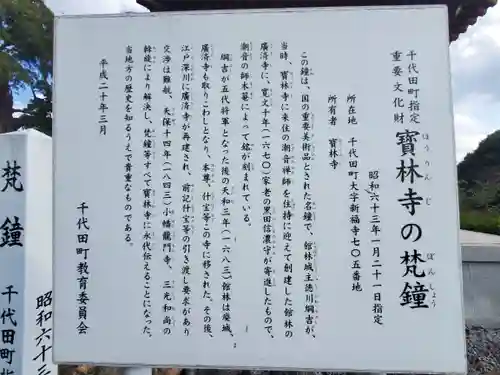 千代田町指定
重要文化財
寶林寺の梵鐘
ほうりんじ
ぼんしょう
昭和六十三年一月二十一日指定
所在地 千代田町大字新福寺七〇五番地
所有者 寶林寺
この鐘は、国の重要美術品とされた名鐘で、館林城主徳川綱吉が、
当時、寶林寺に来住の潮音禅師を住持に迎えて創建した館林の
廣済寺に、寛文十年(一六七〇)家老の黒田信濃守が寄進したもので、
潮音の師木菴によって銘が刻まれている。
綱吉が五代将軍となった後の天和三年(一六八三)館林は廃城、
廣済寺も取りこわしとなり、本尊、什宝等この寺に移された。その後、
江戸深川に廣済寺が再建され、前記什宝等の引き渡し要求があり
交渉は難航、天保十四年(一八四三)小幡龍門寺、三光和尚の
斡旋により解決し、梵鐘等すべて寶林寺に永代伝えることになった、
当地方の歴史を知るうえで貴重なものである。
平成二十年三月
千代田町教育委員会
梵鐘
千代田町指
昭和六十三